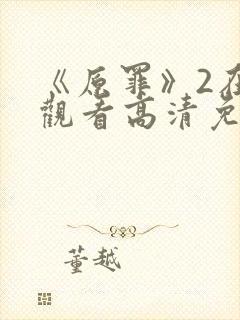 《原罪》2在
觀看高清免
董越